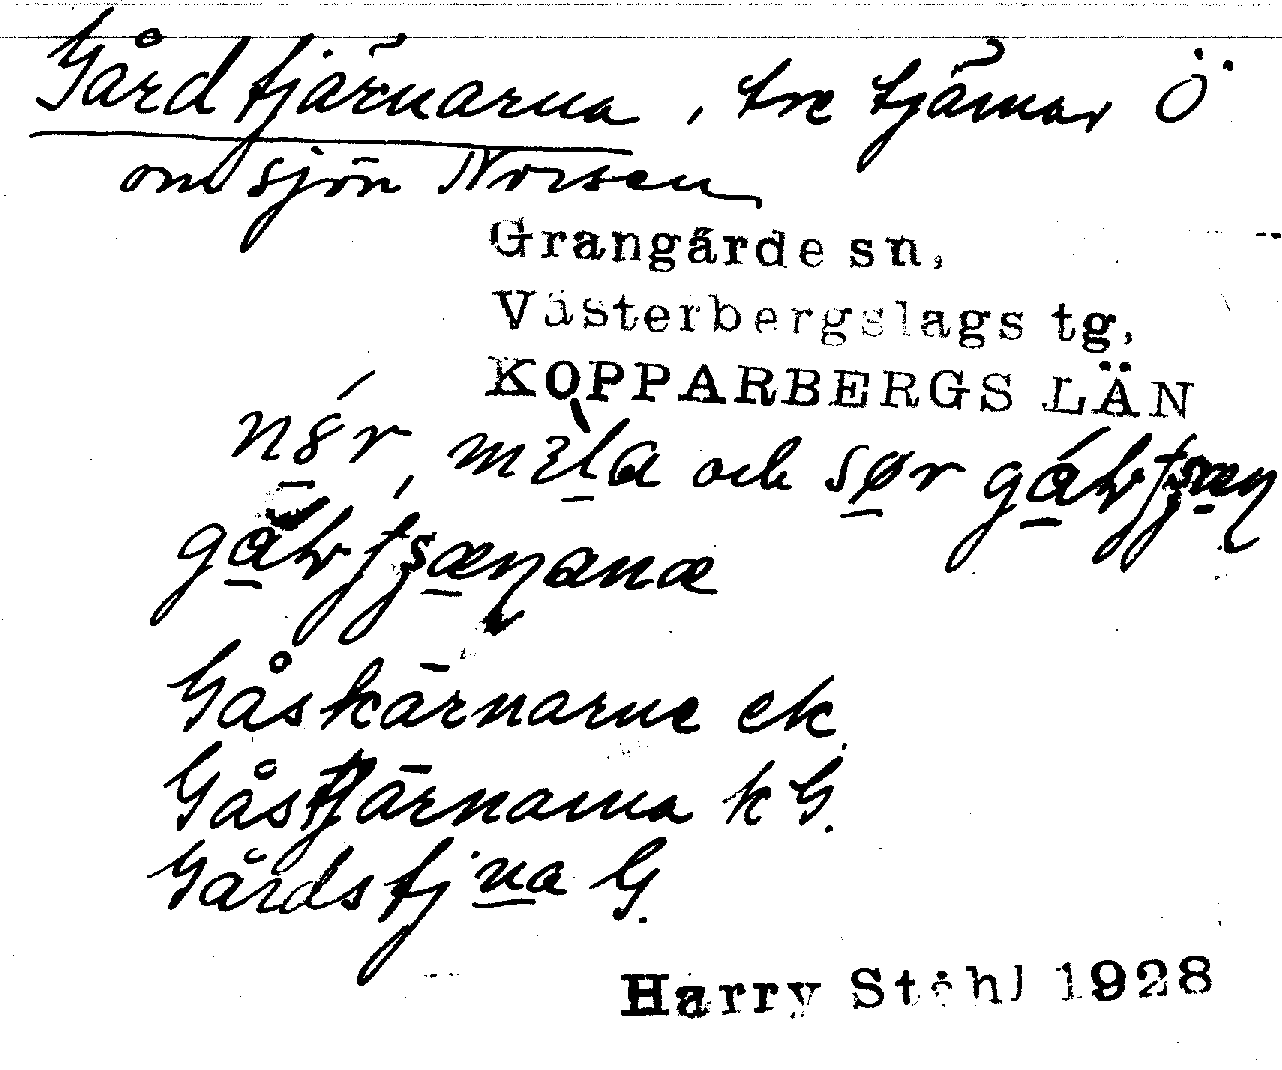 Gårdtjärnarna, tre tjärnar Ö
om sjön Norsen
Grangärde sn,
Västerbergslags tg,
KOPPARBERGS LÄN
och
Gåskärnarne ek.
Gåstjärnarna k G.
Gårdstj na G.
Harry Ståhl 1928